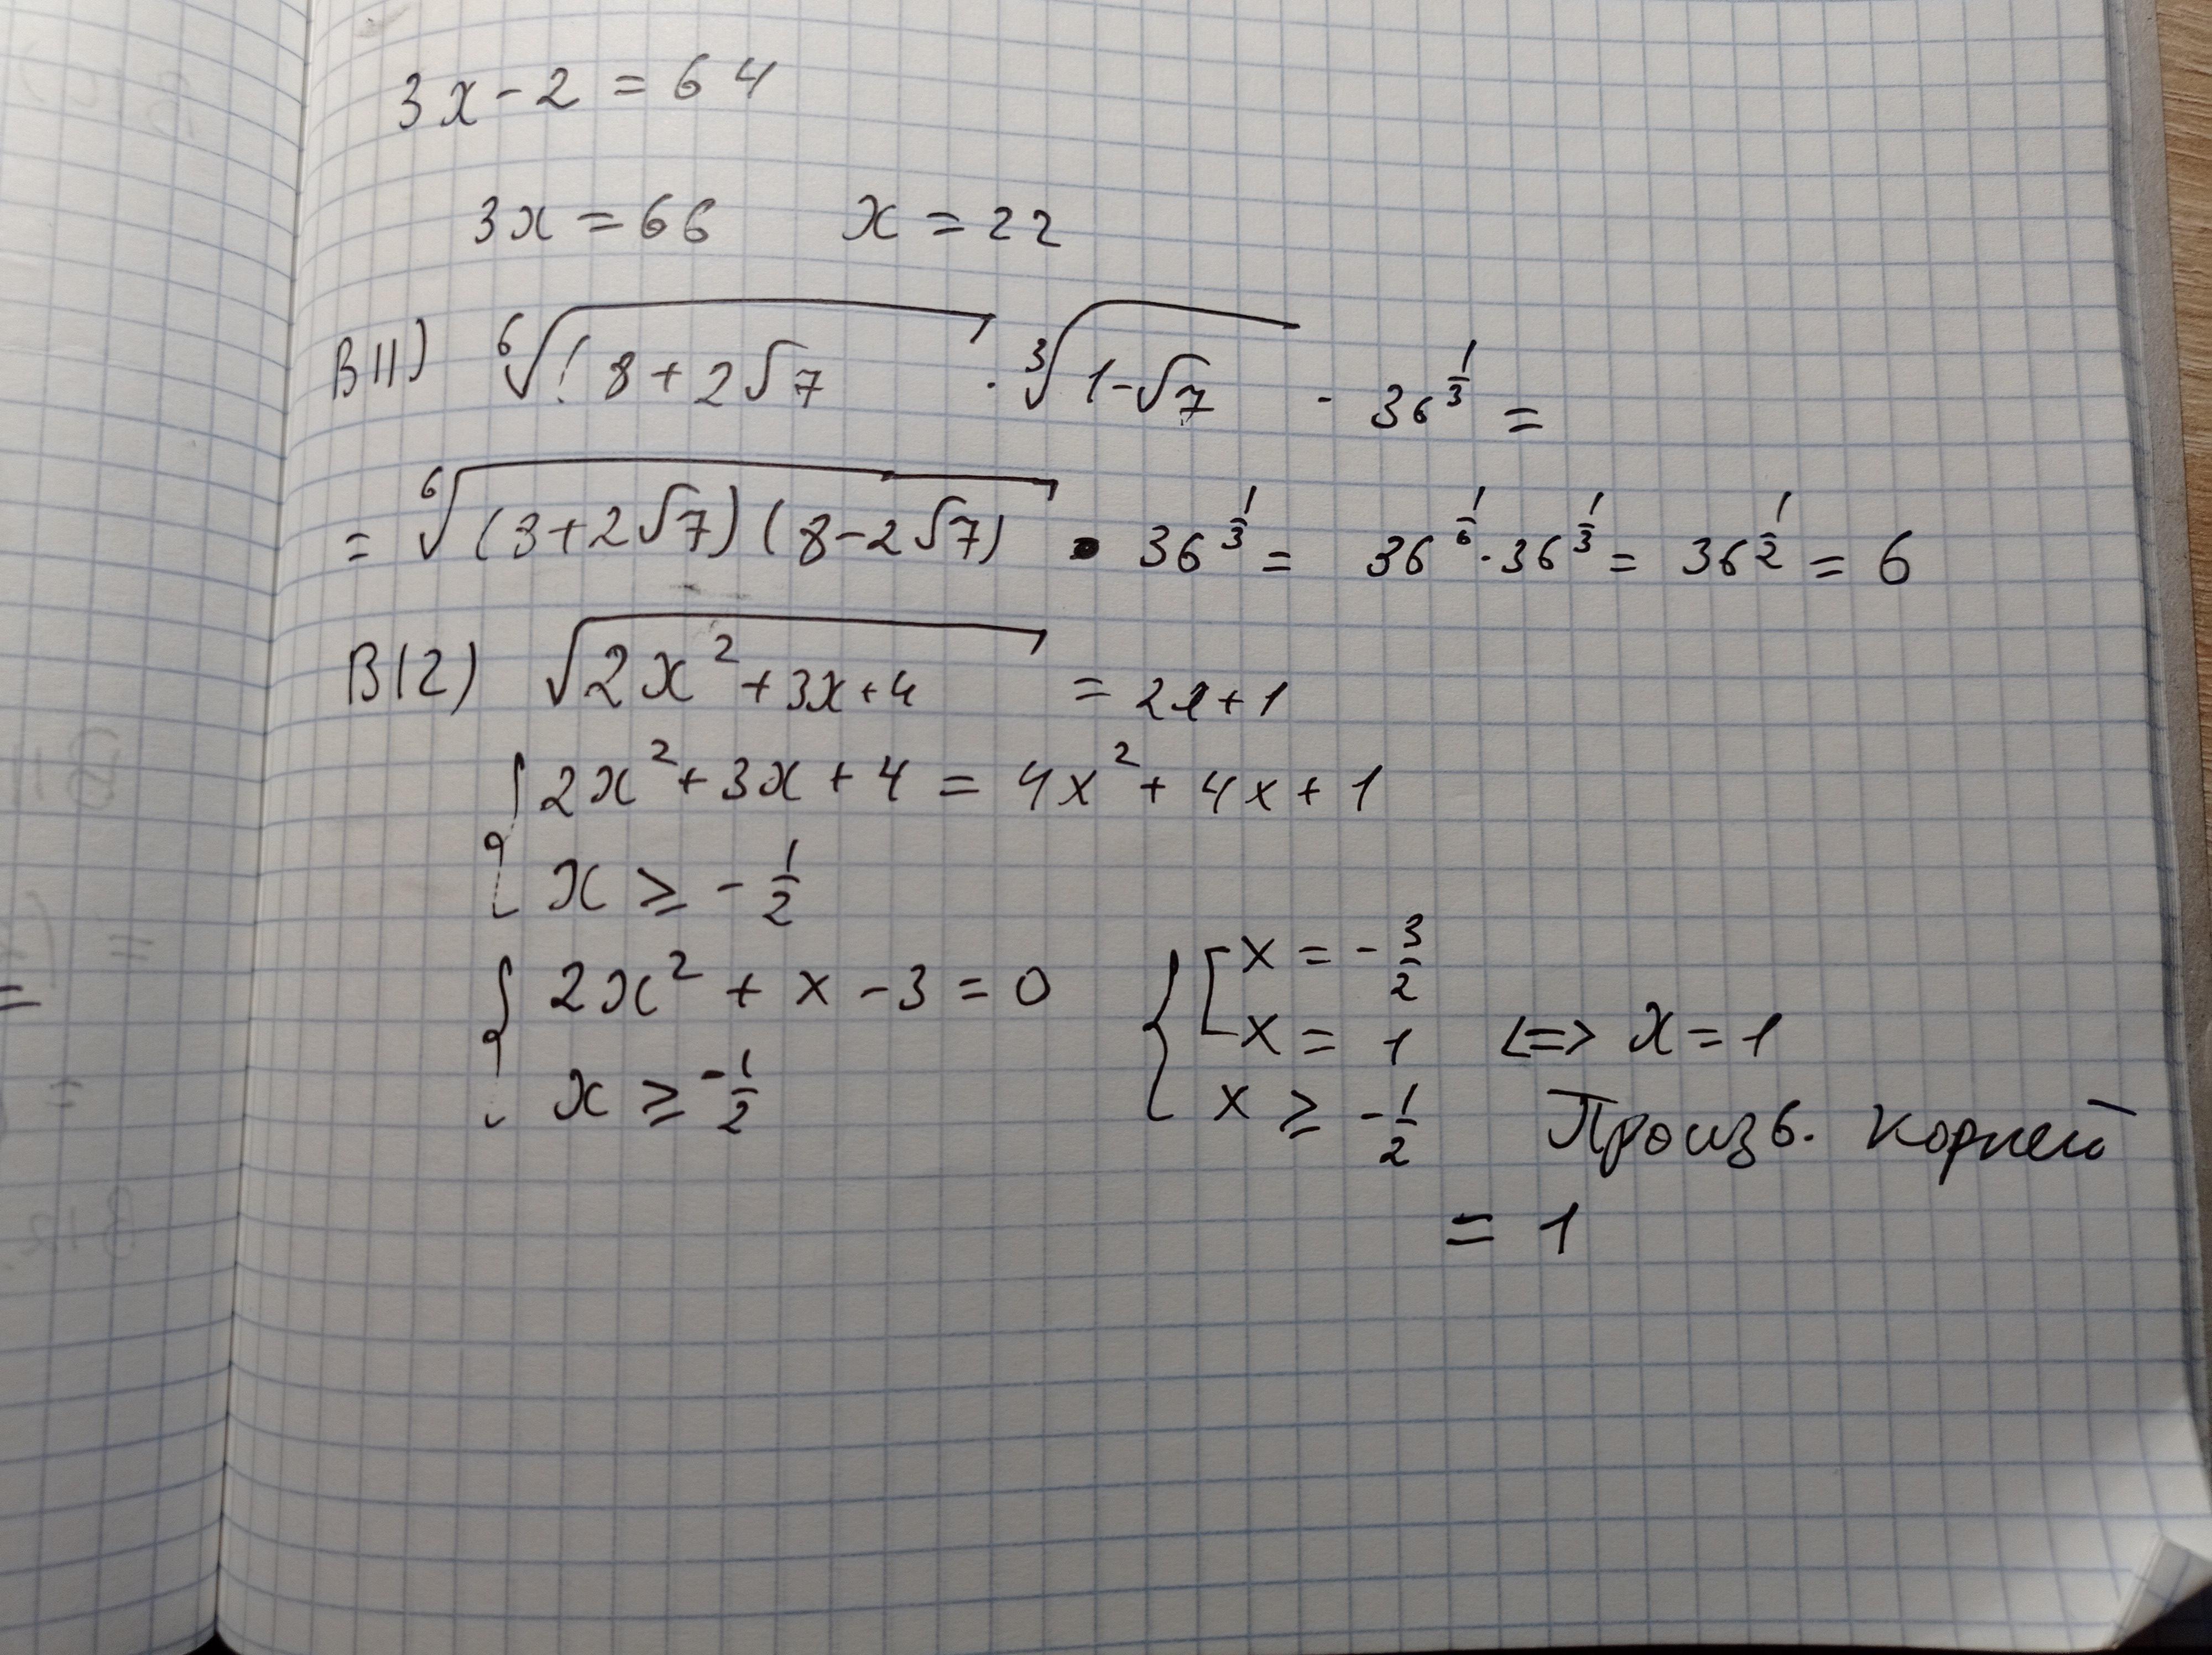 3x - 2 = 64
3x = 66 x = 22
B11) ⁶√(8 + 2√7 · ³√1-√7 · 36^(1/3) =
= ⁶√(8+2√7)(8-2√7) · 36^(1/3) = 36^(1/6) · 36^(1/3) = 36^(1/2) = 6
B12) √2x² + 3x + 4 = 2x + 1
{ 2x² + 3x + 4 = 4x² + 4x + 1
x ≥ - 1/2
{ 2x² + x - 3 = 0
x ≥ - 1/2
{ [ x = - 3/2
x = 1 <=> x = 1
x ≥ - 1/2
Произв. корней
= 1